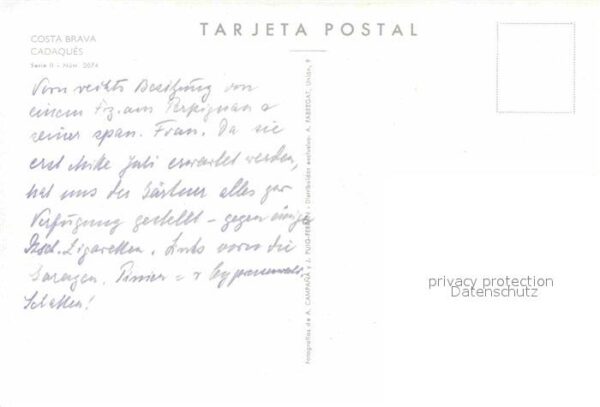 TARJETA POSTAL
COSTA BRAVA
CADAQUÉS
Serie II - Núm. 2074
Vorn rechts Besitzung von
einem Frz. aus Perpignan &
seiner span. Frau. Da sie
erst Mitte Juli erwartet werden,
hat uns der Gärtner alles zur
Verfügung gestellt - gegen einige
Zigaretten. Links vorn die
Garagen. Pinien- &
Schatten!
Fotografías de A. CAMPAÑÁ y J. PUIG-FERRÁN - Distribuidor exclusivo: A. FABREGAT, Unión, 9
privacy protection
Datenschutz